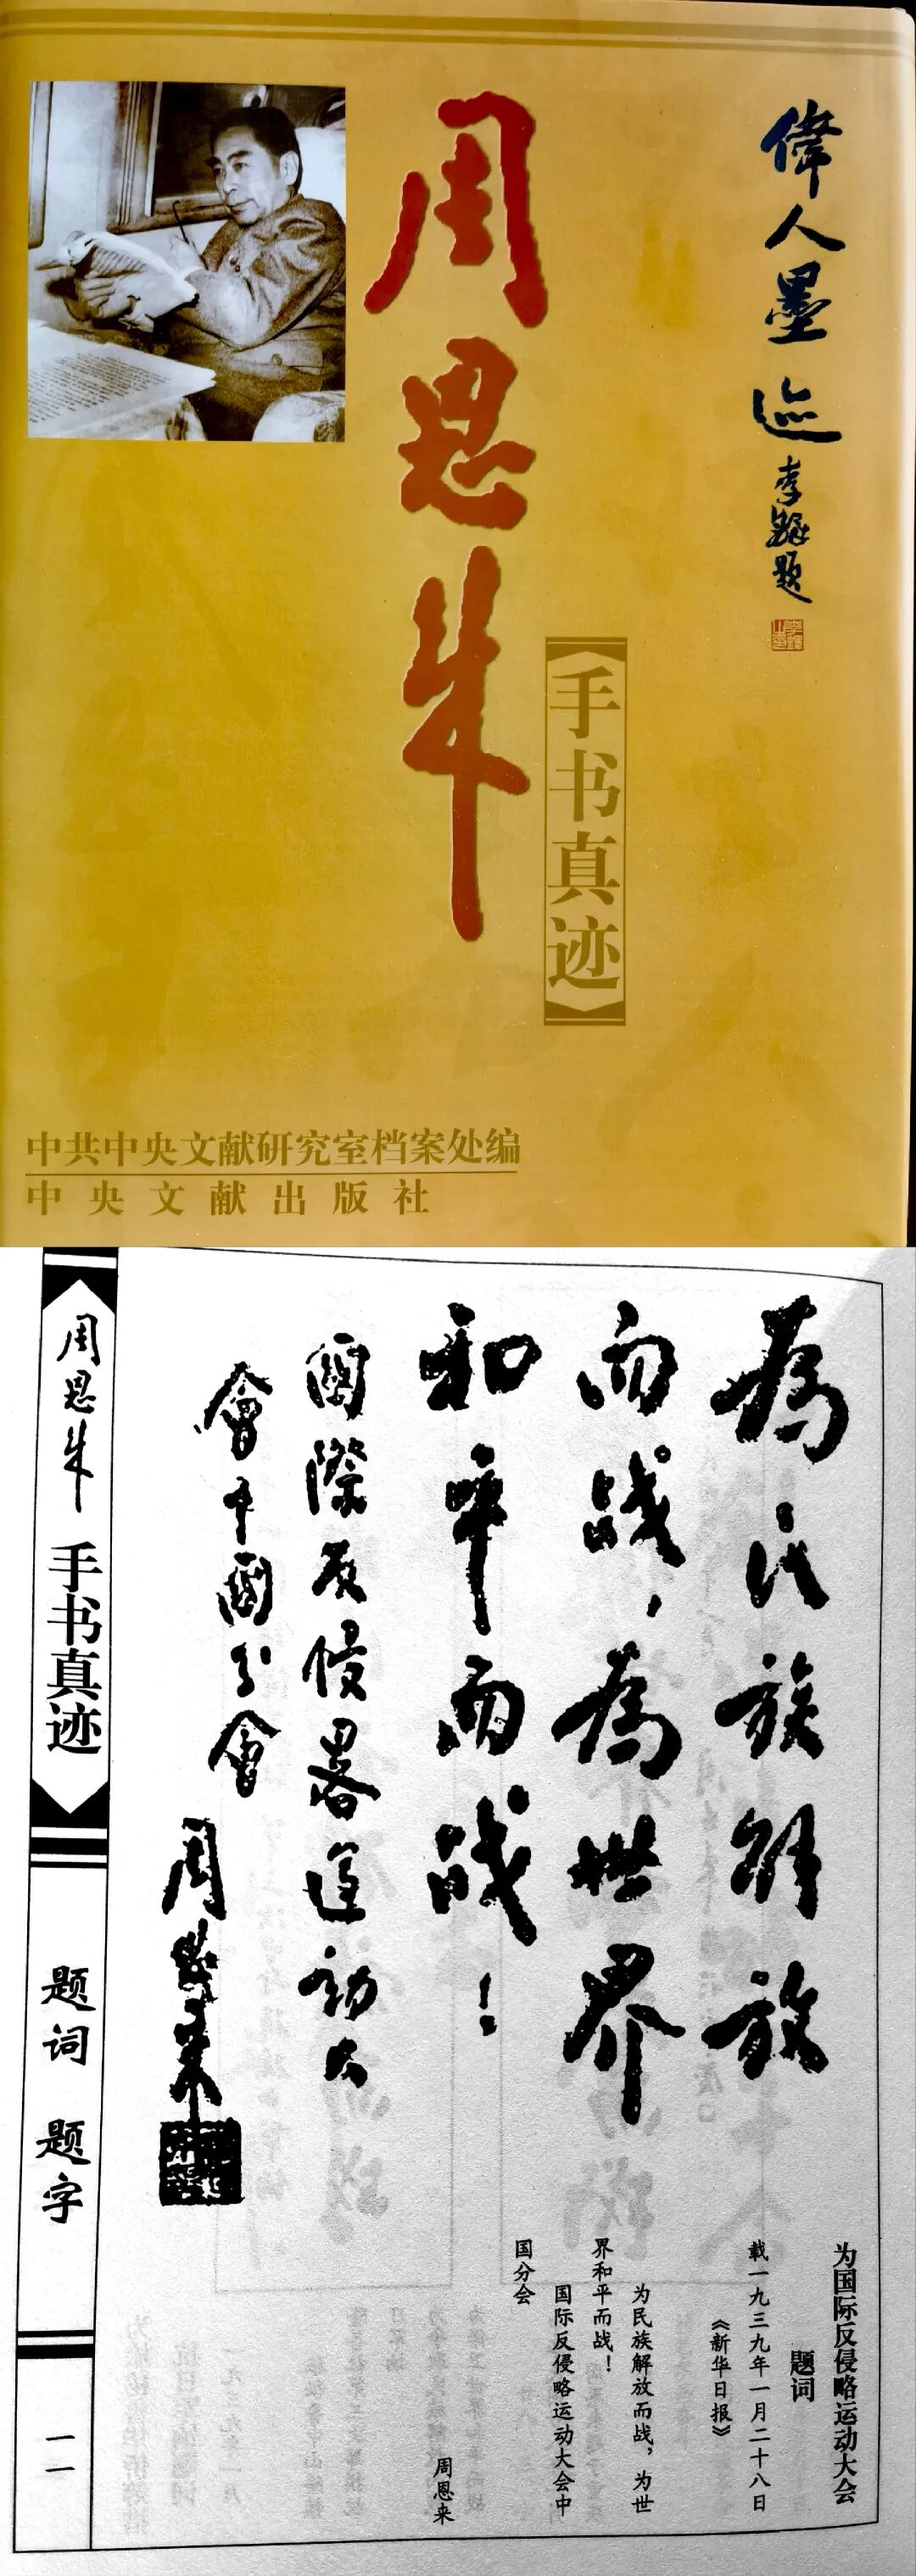 偉人墨迹
李鐸题
周恩来
【手书真迹】
中共中央文献研究室档案处编
中央文献出版社
為民族解放
而战，為世界
和平而战！
國際反侵畧運动大
會中國分會
周恩来
为国际反侵略运动大会
题词
载一九三九年一月二十八日
《新华日报》
为民族解放而战，为世
界和平而战！
国际反侵略运动大会中
国分会
周恩来
周恩来
手书真迹
题词 题字
一一